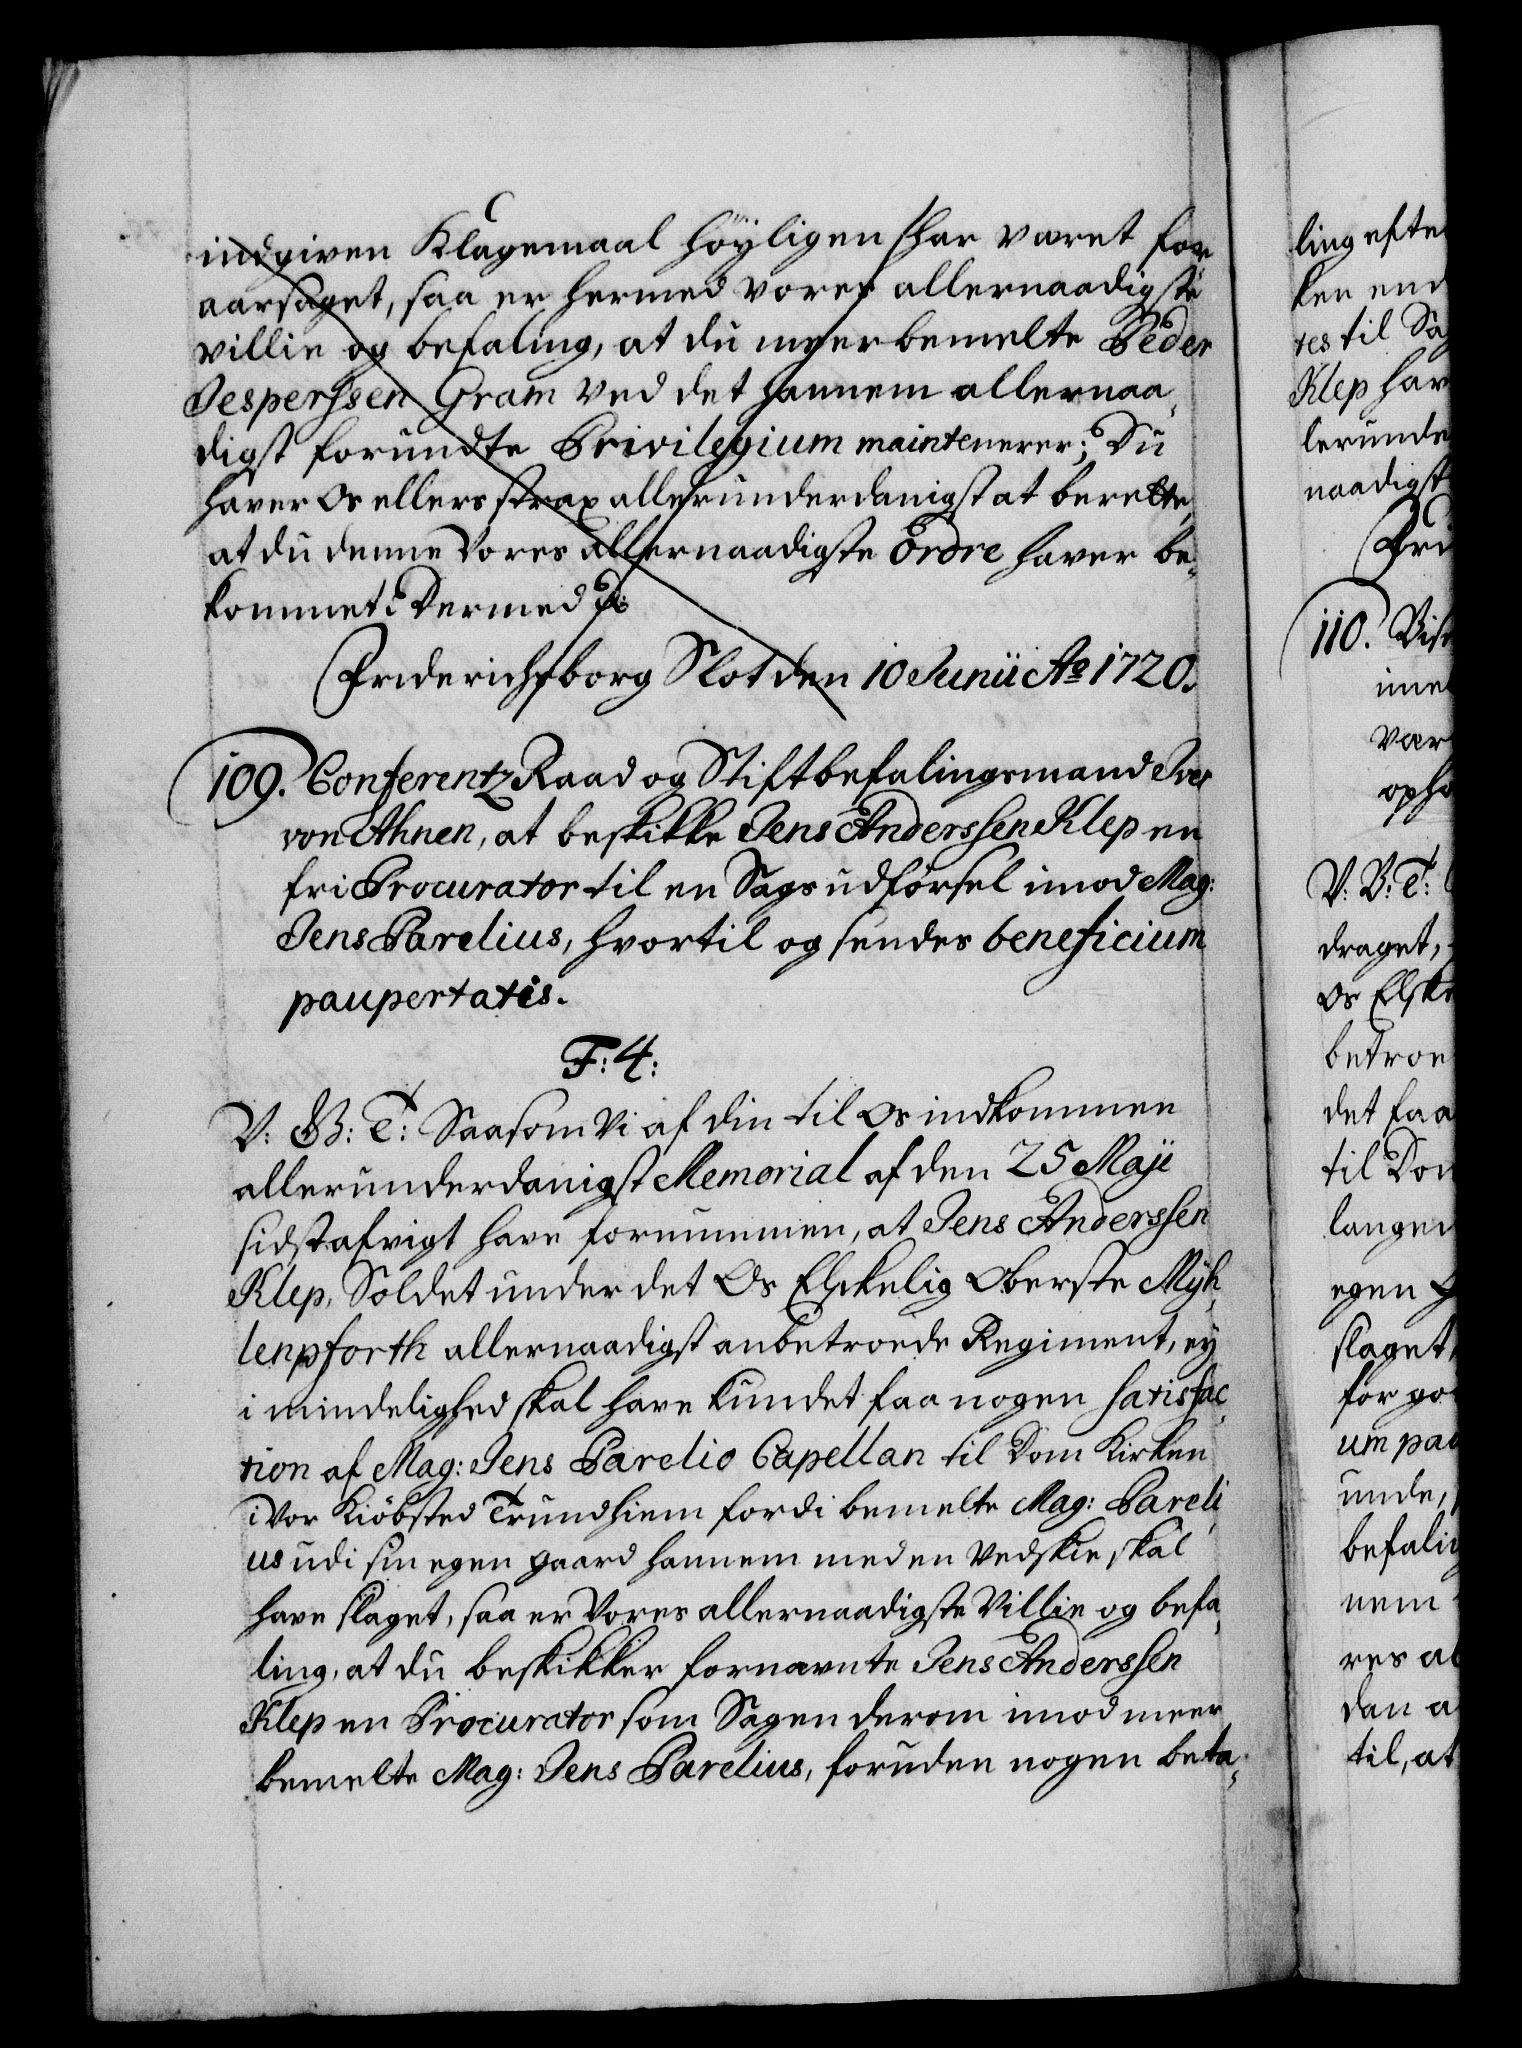 indgiven Klagemaal höyligen har været for
aarsaget, saa er hermed vores allernaadigste
villie og befaling, at du meerbemelte Peder
Jesperssen Gram ved det hannem allernaa„
digst forundte Privilegium maintenerer; Du
haver Os ellers strax allerunderdanigst at berette,
at du denne Vores allernaadigste Ordre haver be„
kommet; Dermed p:
Friderichsborg Slot den 10 Junii Ao 1720.
109. Conferentz Raad og Stiftbefalingsmand Iver
von Ahnen, at beskikke Jens Anderssen Klep en
fri Procurator til en Sags udförsel imod Mag:
Jens Parelius, hvortil og sendes beneficium
paupertatis.
F: 4:
V: G: T: Saasom Vi af din til Os indkommen
allerunderdanigst Memorial af den 25 Maji
sidst afvigt have fornummen, at Jens Anderssen
Klep, Soldet under det Os Elskelig Oberste Myh„
lenpforth allernaadigst anbetroede Regiment, ey
i mindelighed skal have kundet faa nogen satisfac„
tion af Mag: Jens Parelio Capellan til Dom Kirken
i Vor Kiöbsted Trundhiem fordi bemelte Mag: Pareli„
us udi sin egen gaard hannem med en Vedskie skal
have slaget, saa er Vores allernaadigste Villie og befa„
ling, at du beskikker fornævnte Jens Anderssen
Klep en Procurator som Sagen derom imod meer
bemelte Mag: Jens Parelius, foruden nogen beta„
ling efte
ken end
res til Sag
Klep har
lerunde
naadigst
Fri
110. Vise
ime
var
opho
V: G: T:
draget,
Os Elske
betroe
det faa
til Dom
langen
egen
slaget,
for go
um pau
unde,
befalin
nem
res al
dan a
til, at